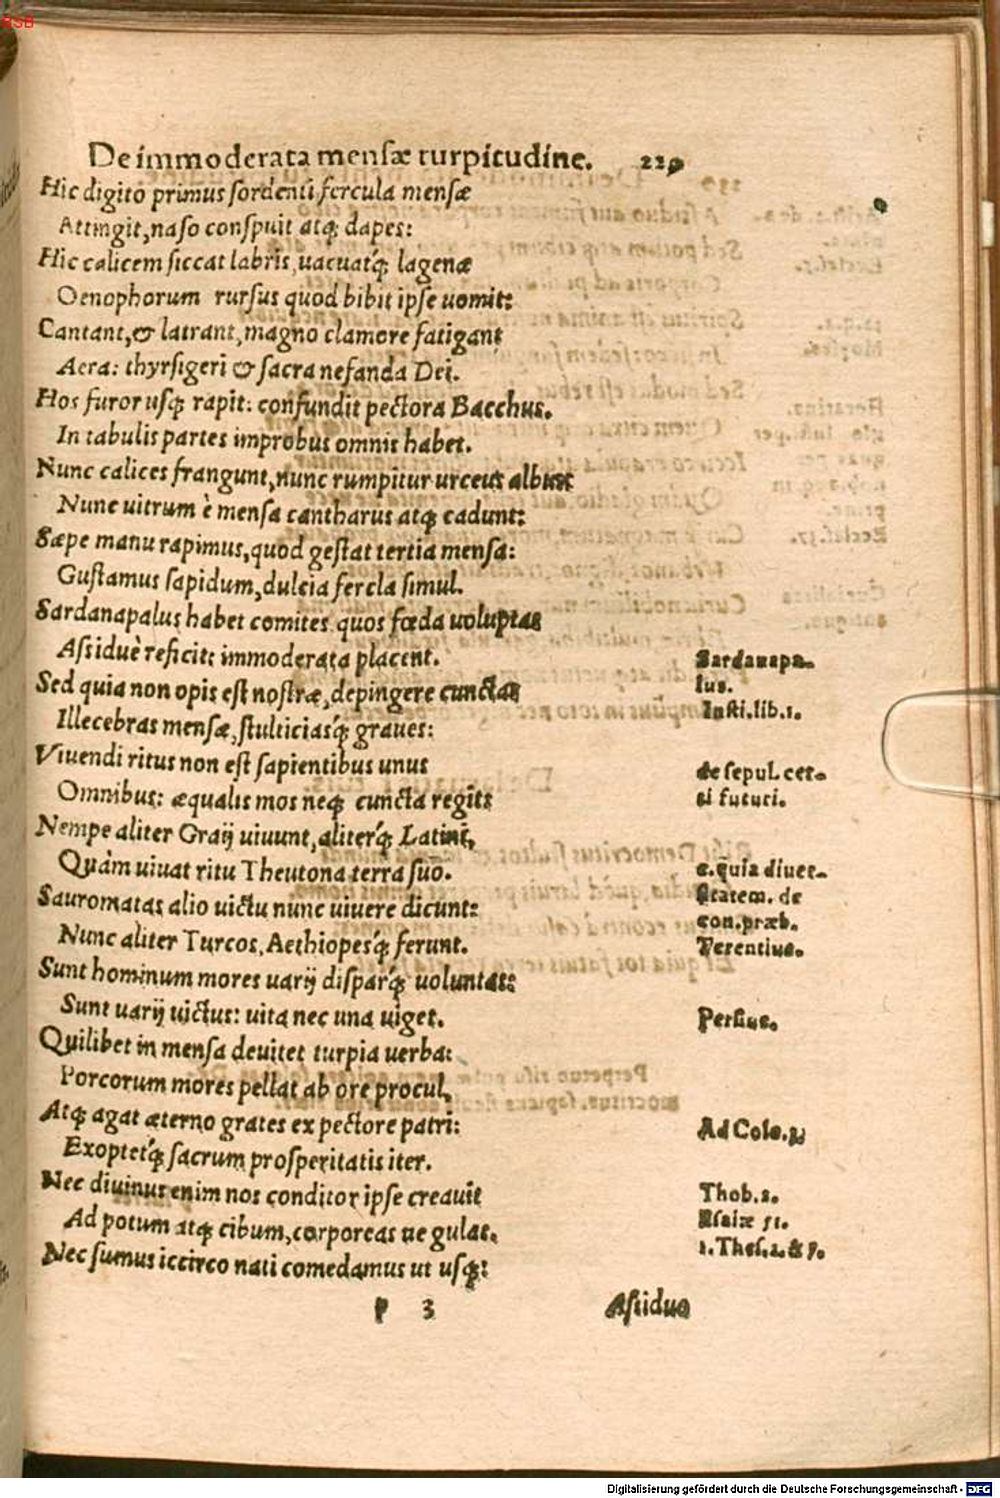 BSB
De immoderata mensæ turpitudine. 229
Hic digito primus sordenti fercula mensæ
Attingit, naso conspuit atq; dapes:
Hic calicem siccat labris, uacuatq́; lagenæ
Oenophorum rursus quod bibit ipse uomit:
Cantant, & latrant, magno clamore fatigant
Aera: thyrsigeri & sacra nefanda Dei.
Hos furor usq; rapit: confundit pectora Bacchus.
In tabulis partes improbus omnis habet.
Nunc calices frangunt, nunc rumpitur urceus albus
Nunc uitrum è mensa cantharus atq; cadunt:
Sæpe manu rapimus, quod gestat tertia mensa:
Gustamus sapidum, dulcia fercla simul.
Sardanapalus habet comites quos fœda uoluptas
Assiduè reficit: immoderata placent.
Sardanapa-
lus.
Sed quia non opis est nostræ, depingere cunctas
Insti. lib. 1.
Illecebras mensæ, stulticiasq́; graues:
Viuendi ritus non est sapientibus unus
de sepul. cet-
Omnibus: æqualis mos neq; cuncta regit:
si futuri.
Nempe aliter Graij uiuunt, aliterq́; Latini,
Quàm uiuat ritu Theutona terra suo.
c. quia diuer-
Sauromatas alio uictu nunc uiuere dicunt:
sitatem. de
con. præb.
Nunc aliter Turcos, Aethiopesq́; ferunt.
Terentius.
Sunt hominum mores uarij disparq́; uoluntas:
Sunt uarij uictus: uita nec una uiget.
Persius.
Quilibet in mensa deuitet turpia uerba:
Porcorum mores pellat ab ore procul,
Atq; agat æterno grates ex pectore patri:
Ad Colo. 3
Exoptetq́; sacrum prosperitatis iter.
Nec diuinus enim nos conditor ipse creauit
Thob. 2.
Ad potum atq; cibum, corporeas ue gulas.
Esaiæ 51.
1. Thes. 2. & 5.
Nec sumus iccirco nati comedamus ut usq;:
P 3 Assiduo
Digitalisierung gefördert durch die Deutsche Forschungsgemeinschaft - DFG